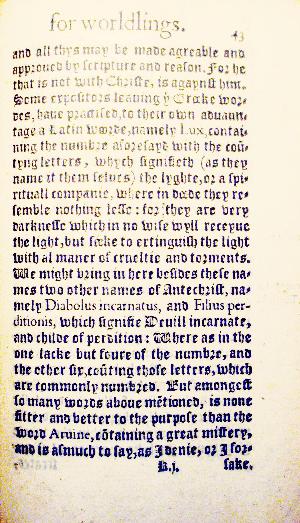 for worldlings.
43
and all thys may be made agreable and
approued by scripture and reason. For he
that is not with Christe, is agaynst him.
Some expositors leauing yͤ Greke wor-
des, haue practised, to their own aduaun-
tage a Latin worde, namely Lux, contai-
ning the numbre aforesayd with the coũ-
tyng letters, whych signifieth (as they
name it them selues) the lyghte, or a spi-
rituall companie, where in dede they re-
semble nothing lesse: for they are very
darkenesse which in no wise wyll receyue
the light, but seeke to extinguish the light
with al maner of crueltie and torments.
We might bring in here besides these na-
mes two other names of Antechrist, na-
mely Diabolus incarnatus, and Filius per-
ditionis, which signifie Deuill incarnate,
and childe of perdition: Where as in the
one lacke but foure of the numbre, and
the other six, coũting those letters, which
are commonly numbred. But amongest
so many words aboue mẽtioned, is none
fitter and better to the purpose than the
word Arnine, cõtaining a great mistery,
and is asmuch to say, as I denie, or I for-
K.j. sake.